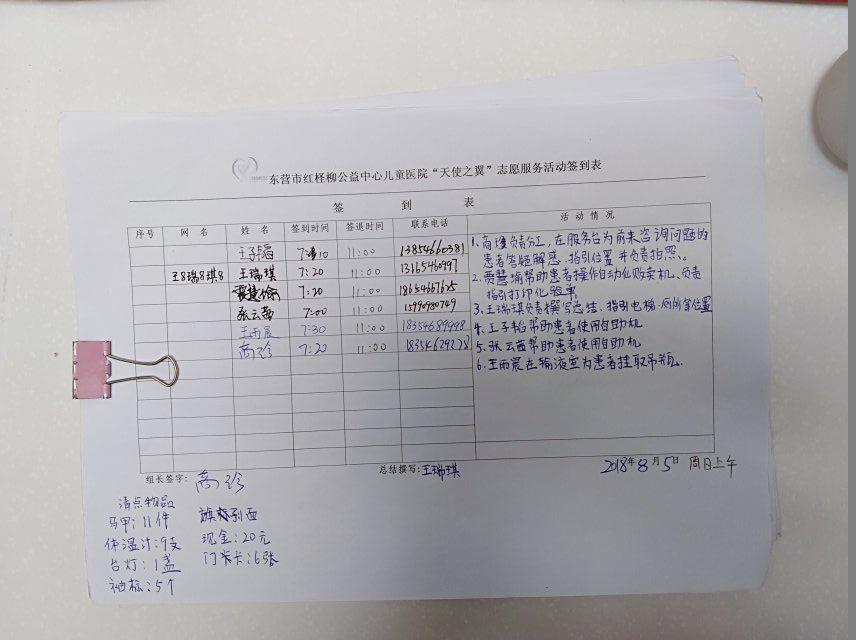 东营市红柽柳公益中心儿童医院“天使之翼”志愿服务活动签到表
签 到 表
序号 网 名 姓 名 签到时间 签退时间 联系电话 活 动 情 况
7:10 11:00 13854660381
王8瑞8琪8 王瑞琪 7:20 11:00 13165460997
7:20 11:00 18654667625
张云茜 7:00 11:00 15990980749
王雨晨 7:30 11:00 18354689998
商珍 7:20 11:00 18354629228
1、商珍负责分工,在服务台为前来咨询问题的
患者答疑解惑、指引位置并负责拍照、。
2、贾慧瑜帮助患者操作自动化贩卖机、负责
指引打印化验单。
3、王瑞琪负责撰写总结、指引电梯、厕所等位置
4、王子怡帮助患者使用自助机
5、张云茜帮助患者使用自助机
6、王雨晨在输液室为患者挂取吊瓶。
组长签字: 商珍 总结撰写: 王瑞琪 2018年8月5日 周日上午
清点物品
马甲:11件
体温计:9支 现金:20元
台灯:1盏 门禁卡:6张
袖标:5个